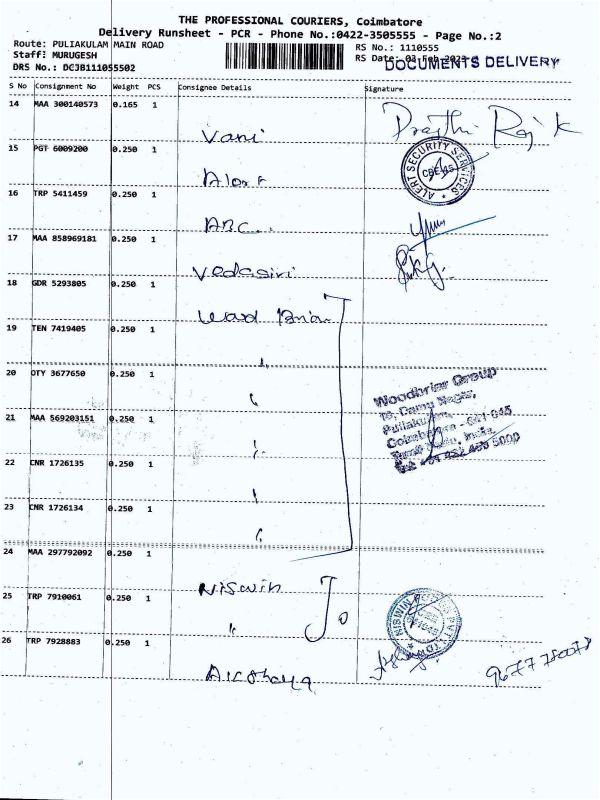 THE PROFESSIONAL COURIERS, Coimbatore
Delivery Runsheet - PCR - Phone No.:0422-3505555 - Page No.:2
Route: PULIAKULAM MAIN ROAD
RS No.: 1110555
Staff: MURUGESH
RS Date:
DOCUMENTS DELIVERY
DRS No.: DCJB111055502
S No Consignment No Weight PCS Consignee Details Signature
14 MAA 300140573 0.165 1
Vani
15 PGT 6009200 0.250 1
ALERT SECURITY SERVICES
CBE-45
16 TRP 5411459 0.250 1
ABC...
17 MAA 858969181 0.250 1
Vedagiri
18 GDR 5293805 0.250 1
19 TEN 7419405 0.250 1
20 OTY 3677650 0.250 1
Woodbriar Group
Coimbatore - 641 045
Tamil Nadu, India.
21 MAA 569203151 0.250 1
22 CNR 1726135 0.250 1
23 CNR 1726134 0.250 1
24 MAA 297792092 0.250 1
Niswin
25 TRP 7910061 0.250 1
26 TRP 7928883 0.250 1
Akshaya